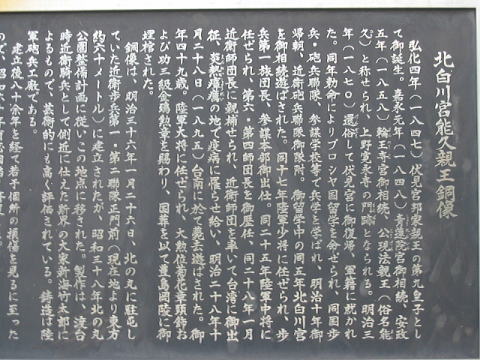 北白川宮能久親王銅像
弘化四年(一八四七)伏見宮邦家親王の第九皇子とし
て御誕生。嘉永元年(一八四八)青蓮院宮御相続、安政
五年(一八五八)輪王寺宮御相続、公現法親王(俗名能
久)と称せられ、上野寛永寺の門跡となられる。明治三
年(一八七〇)還俗して伏見宮に御復帰、軍籍に就かれ
た。同年勅命によりプロシヤ国留学を命ぜられ、同国歩
兵・砲兵聯隊、参謀学校等で兵学を学ばれ、明治十年御
帰朝、近衛砲兵聯隊御附。御留学中の同五年北白川宮
を御相続遊ばされた。同十七年陸軍少将に任ぜられ、歩
兵第一旅団長、参謀本部御出仕。同二十五年陸軍中将に
任ぜられ、第六・第四師団長を御歴任、同二十八年一月
近衛師団長に親補せられ、近衛師団を率いて台湾に御出
征、炎熱瘴癘の地で疫病に罹らせ給い、明治二十八年十
月二十八日(一八九五)台南に於て薨去遊ばされた。御
年四十九歳。陸軍大将に任ぜられ、大勲位菊花章頸飾お
よび功三級金鵄勲章を賜わり、国葬を以て豊島岡陵に御
埋棺された。
銅像は、明治三十六年一月二十六日、北の丸に駐屯し
ていた近衛歩兵第一・第二聯隊正門前(現在地より東方
約六十メートル)に建立されたが、昭和三十八年北の丸
公園整備計画に従いこの地点に移された。製作は、往
時近衛騎兵として側近に仕えた新進の大家新海竹太郎に
よるもので、芸術的にも高く評価されている。鋳造は陸
軍砲兵工廠である。
建立後八十余年を経て若干個所の損傷を見るに至った